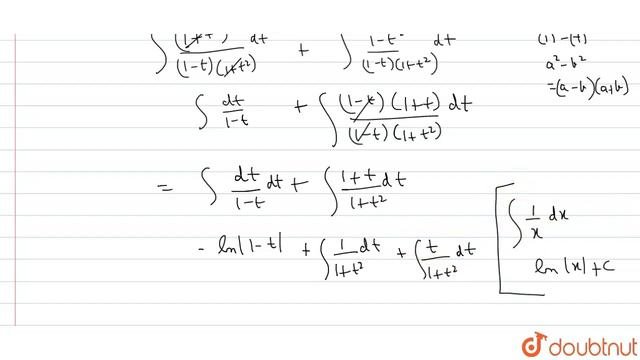 ∫ (1+t²) dt / (1-t)(1+t²) + ∫ 1-t² / (1-t)(1+t²) dt
(1)²-(t)²
a²-b²
=(a-b)(a+b)
∫ dt/1-t + ∫ (1-t)(1+t) dt / (1-t)(1+t²)
= ∫ dt/1-t dt + ∫ 1+t/1+t² dt
- ln|1-t| + ∫ 1/1+t² dt + ∫ t/1+t² dt
∫ 1/x dx
ln|x|+c
doubtnut